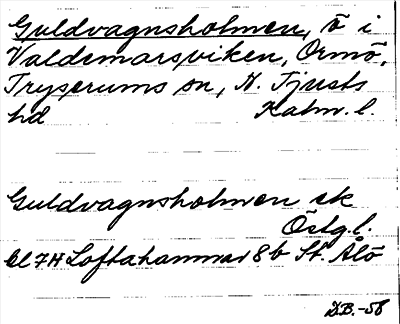 Guldvagnsholmen, ö i
Valdemarsviken, Ormö,
Tryserums sn, N. Tjusts
hd Kalm. l.
Guldvagnsholmen ek
Östg. l.
bl 7H Loftahammar 8b St. Ålö
D.B.-58